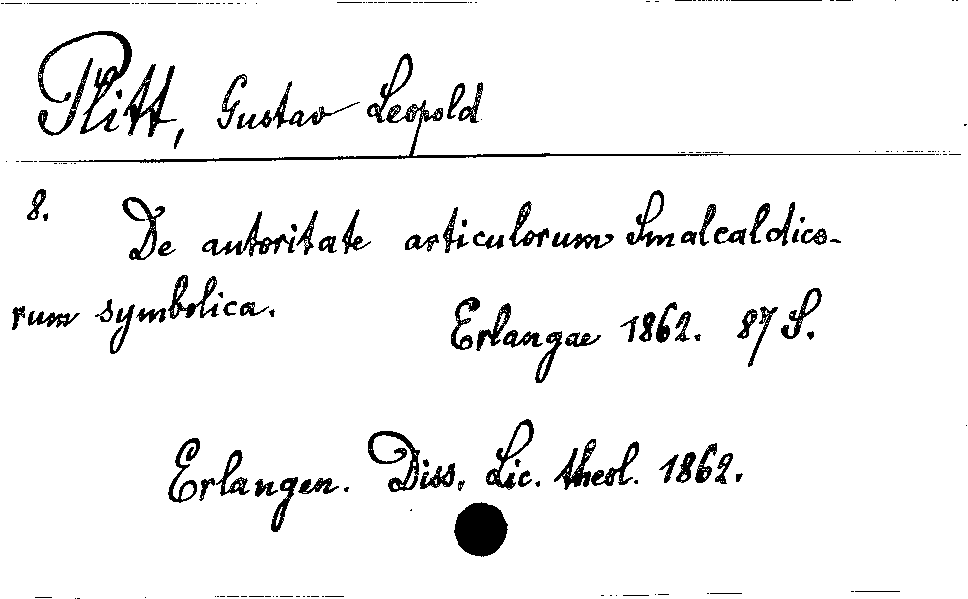 Plitt, Gustav Leopold
8.
De autoritate articulorum Smalcaldico-
rum symbolica.
Erlangae 1862. 87 S.
Erlangen. Diss. Lic. theol. 1862.